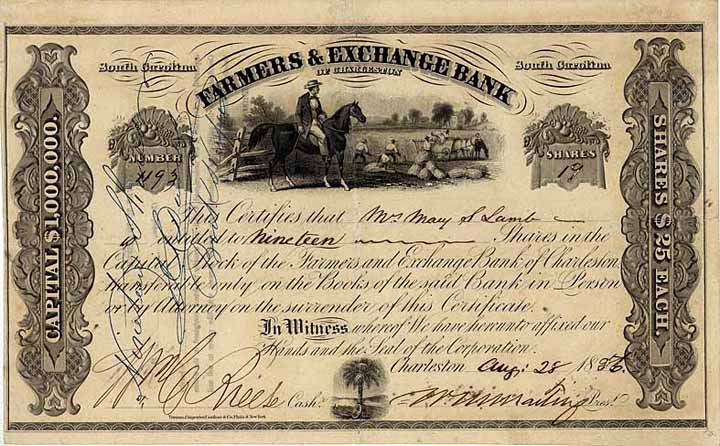 South Carolina
FARMERS & EXCHANGE BANK
OF CHARLESTON
South Carolina
CAPITAL $1,000,000.
NUMBER
SHARES
19
SHARES $25 EACH.
This Certifies that Mrs Mary S Lamb
is entitled to Nineteen Shares in the
Capital Stock of the Farmers and Exchange Bank of Charleston
transferable only on the Books of the said Bank in Person
or by Attorney on the surrender of this Certificate.
In Witness whereof We have hereunto affixed our
Hands and the Seal of the Corporation.
Charleston Aug: 28 18
Wm C Breese Cash.r
Pres.t